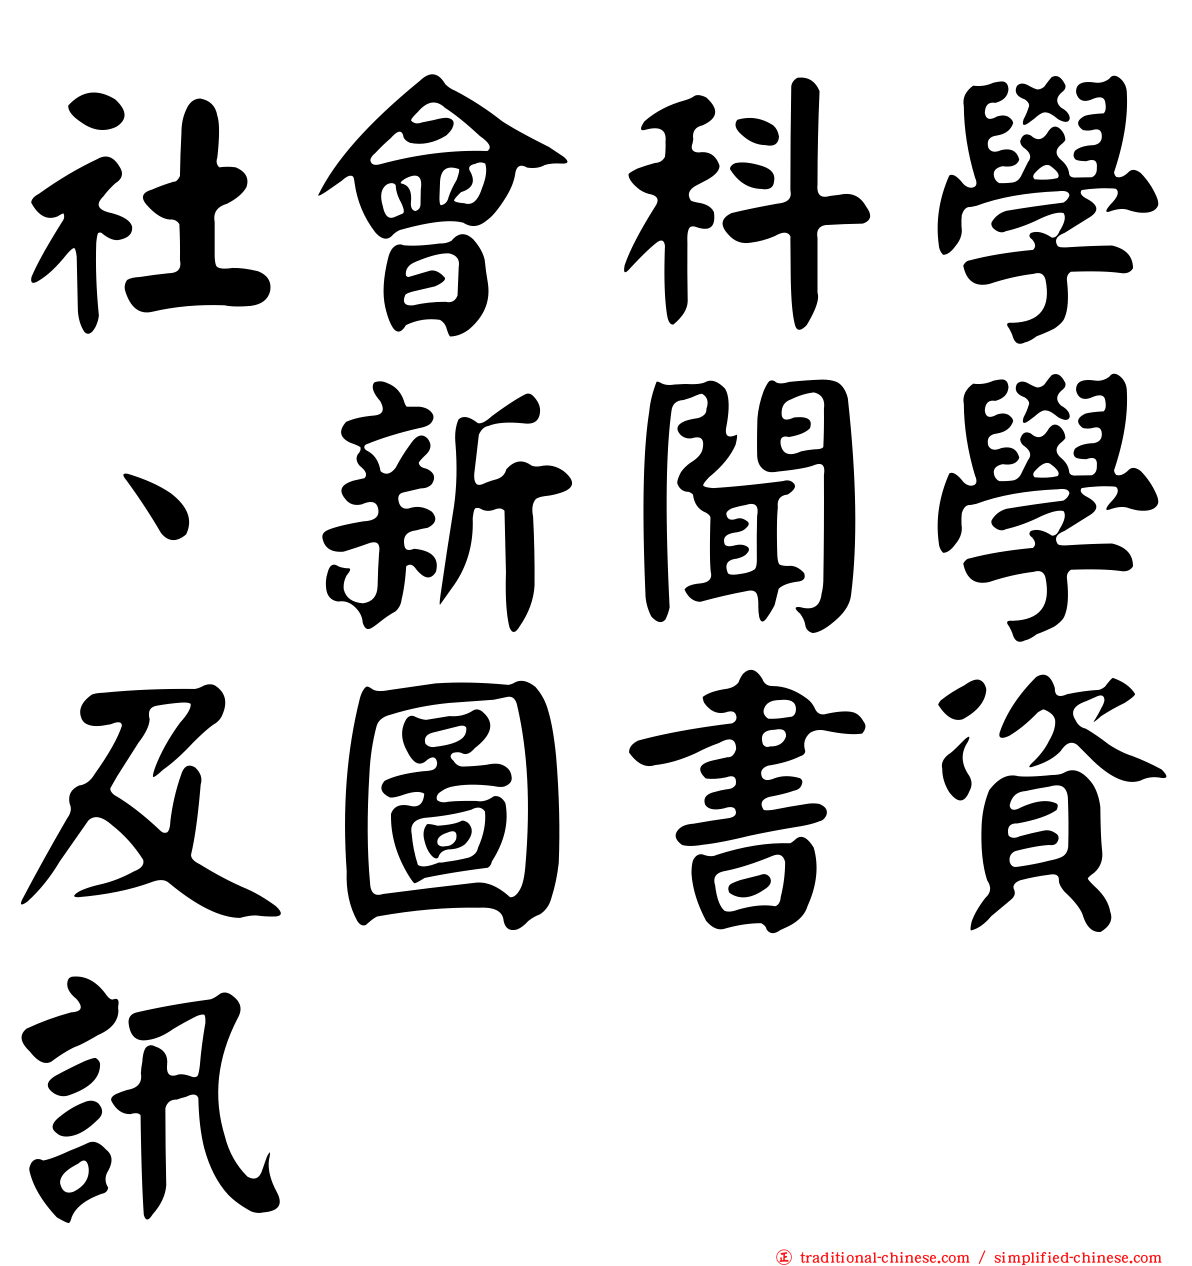 社會科學
、新聞學
及圖書資
訊
正 traditional-chinese.com / simplified-chinese.com